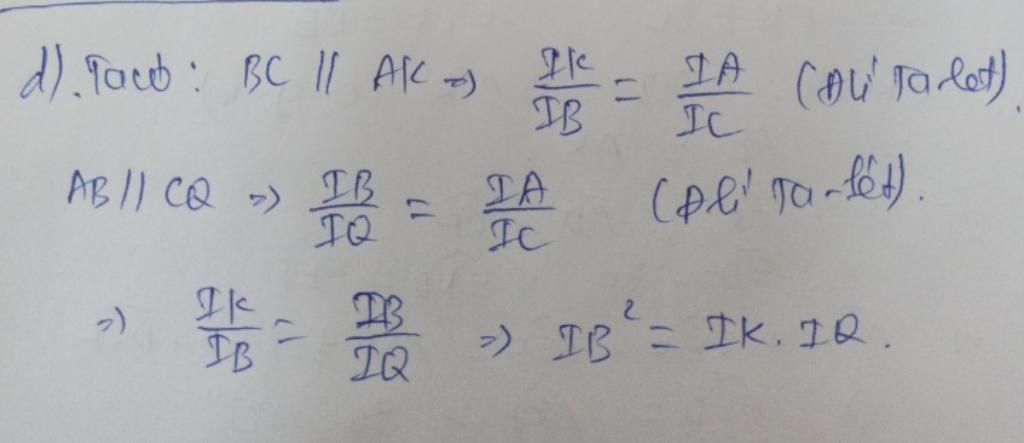 d). Ta có: BC // AK => IK/IB = IA/IC (Đlí Ta let).
AB // CQ => IB/IQ = IA/IC (Đlí Ta-lét).
=> IK/IB = IB/IQ => IB² = IK. IQ.